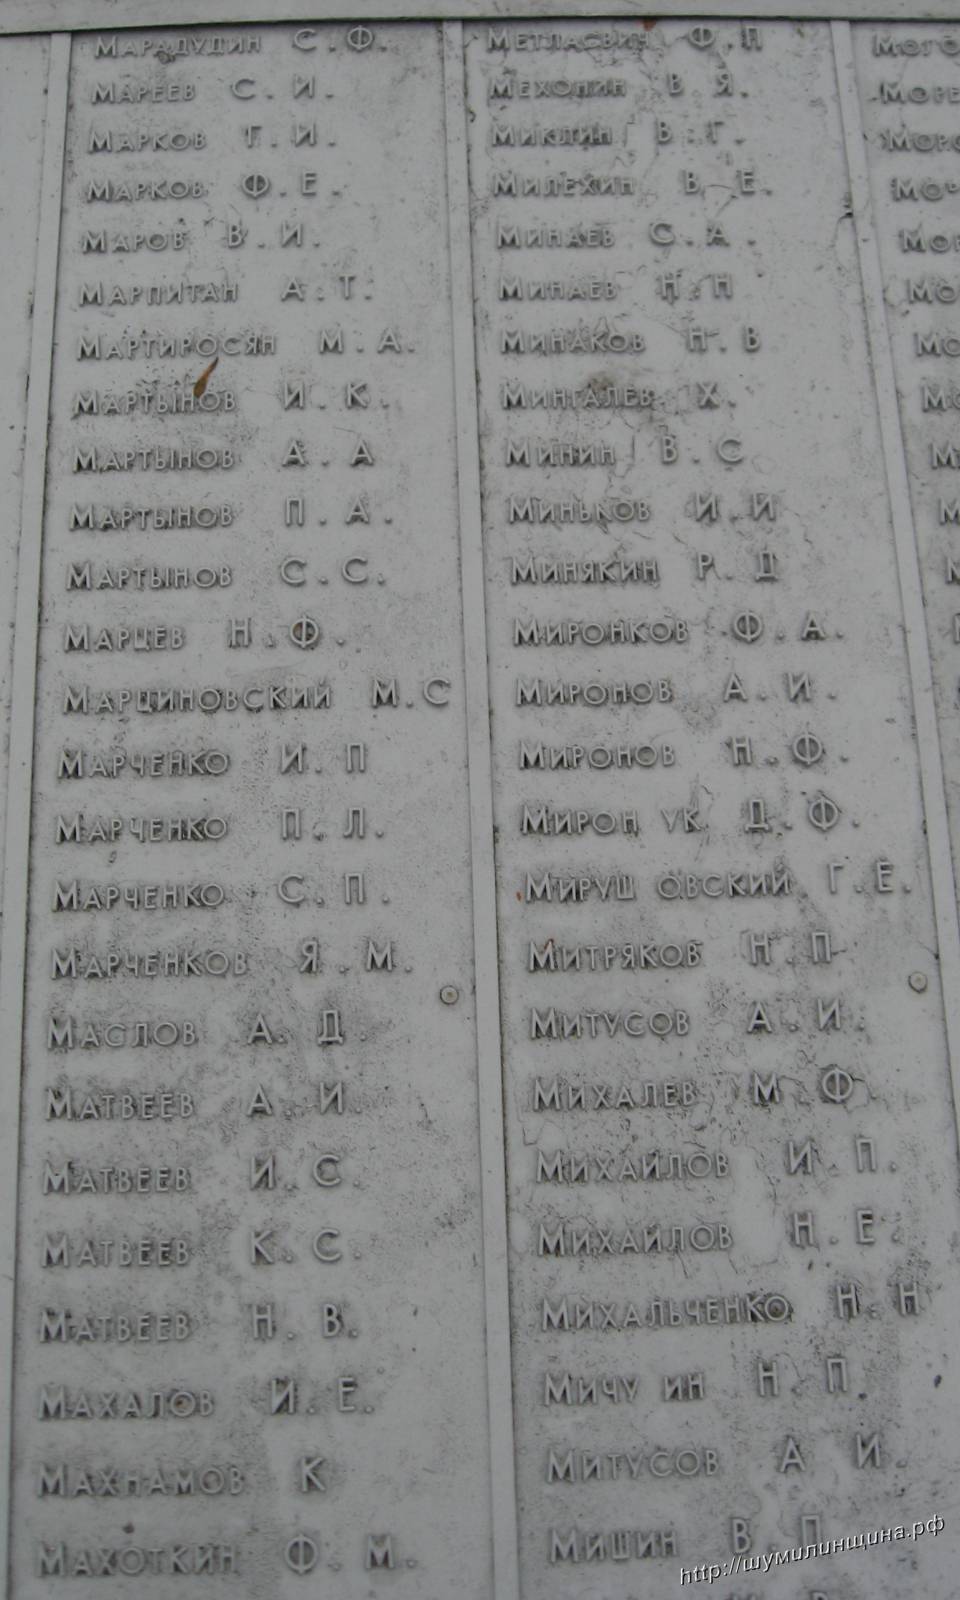 Марадудин С.Ф.
Мареев С.И.
Марков Т.И.
Марков Ф.Е.
Маров В.И.
Марпитан А.Т.
Мартиросян М.А.
Мартынов И.К.
Мартынов А.А
Мартынов П.А.
Мартынов С.С.
Марцев Н.Ф.
Марциновский М.С
Марченко И.П
Марченко П.Л.
Марченко С.П.
Марченков Я.М.
Маслов А.Д.
Матвеев А.И.
Матвеев И.С.
Матвеев К.С.
Матвеев Н.В.
Махалов И.Е.
Махнамов К
Махоткин Ф.М.
Метласвич Ф.П
Мехонин В Я.
Миклин В.Г.
Милехин В.Е.
Минаев С.А.
Минаев Н.Н
Минаков Н.В
Мингалев Х.
Минин В.С
Миньков И.И
Минякин Р.Д
Миронков Ф.А.
Миронов А.И.
Миронов Н.Ф.
Мирон ук Д.Ф.
Мируш овский Г.Е.
Митряков Н.П
Митусов А.И.
Михалев М.Ф.
Михайлов И.П.
Михайлов Н.Е.
Михальченко Н.Н
Мичу ин Н.П.
Митусов А И.
Мишин В П
http://шумилинщина.рф